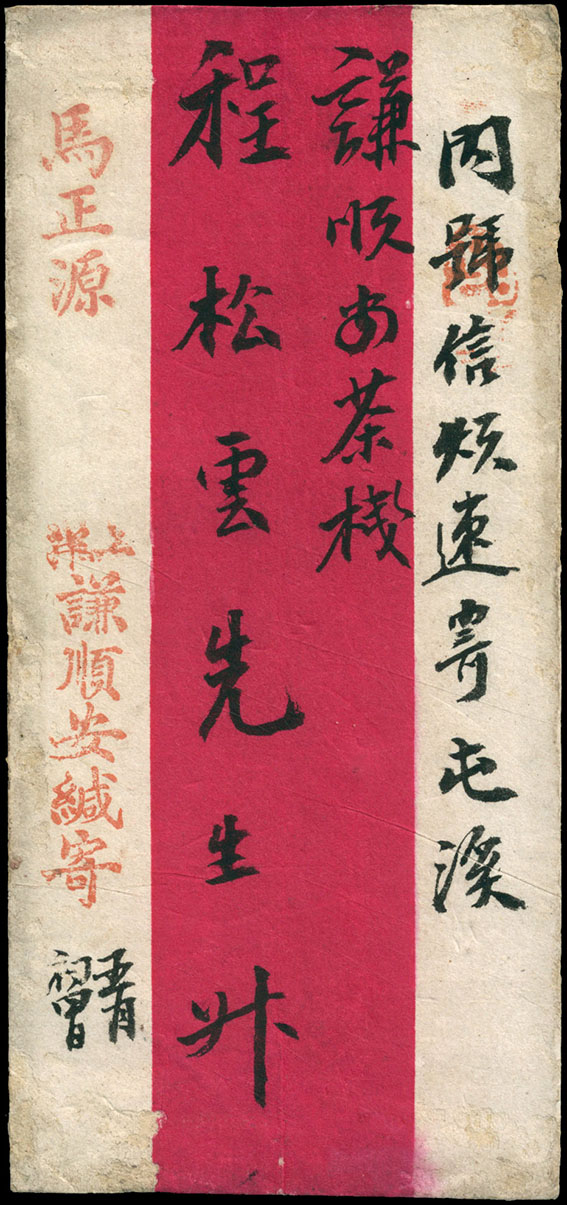 内號信煩速寄屯溪
謙順安茶棧
程松雲先生升
馬正源
上洋
謙順安緘寄
五月